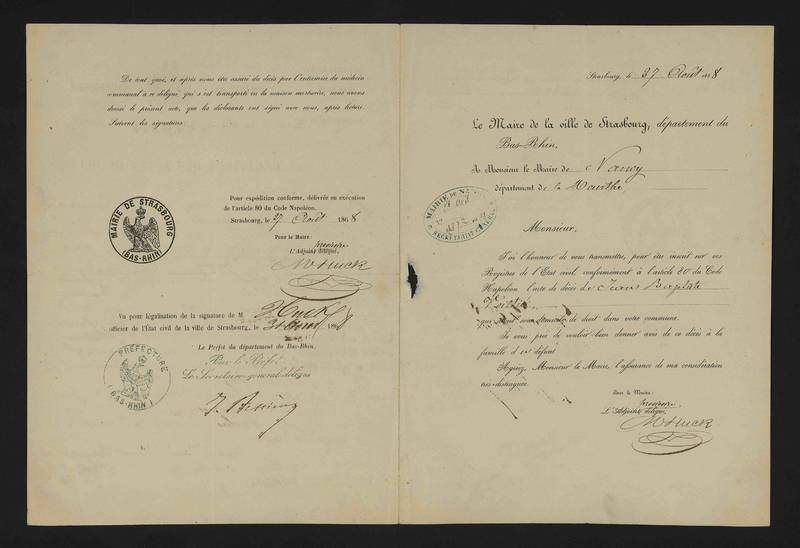 De tout quoi, et après nous être assuré du décès par l'entremise du médecin
communal à ce délégué, qui s'est transporté en la maison mortuaire, nous avons
dressé le présent acte, que les déclarants ont signé avec nous, après lecture.
Suivent les signatures.
Pour expédition conforme, délivrée en exécution
de l'article 80 du Code Napoléon.
Strasbourg, le 27 Août 1868
Pour le Maire:
L'Adjoint délégué,
MAIRIE DE STRASBOURG
(BAS-RHIN)
Vu pour légalisation de la signature de M
officier de l'État civil de la ville de Strasbourg, le 31 1868
Le Préfet du département du Bas-Rhin,
Pour le Préfet
Le Secrétaire-général délégué
PRÉFECTURE
(BAS-RHIN)
Strasbourg, le 27 Août 1868
Le Maire de la ville de Strasbourg, département du
Bas-Rhin,
A Monsieur le Maire de Nancy
département de la Meurthe
MAIRIE DE
SECRÉTARIAT
Monsieur,
J'ai l'honneur de vous transmettre, pour être inscrit sur vos
Registres de l'État civil, conformément à l'article 80 du Code
Napoléon l'acte de décès de Jean Baptiste
qui était de droit dans votre commune.
Je vous prie de vouloir bien donner avis de ce décès à la
famille du défunt
Agréez, Monsieur le Maire, l'assurance de ma considération
très-distinguée.
Pour le Maire:
L'Adjoint délégué,